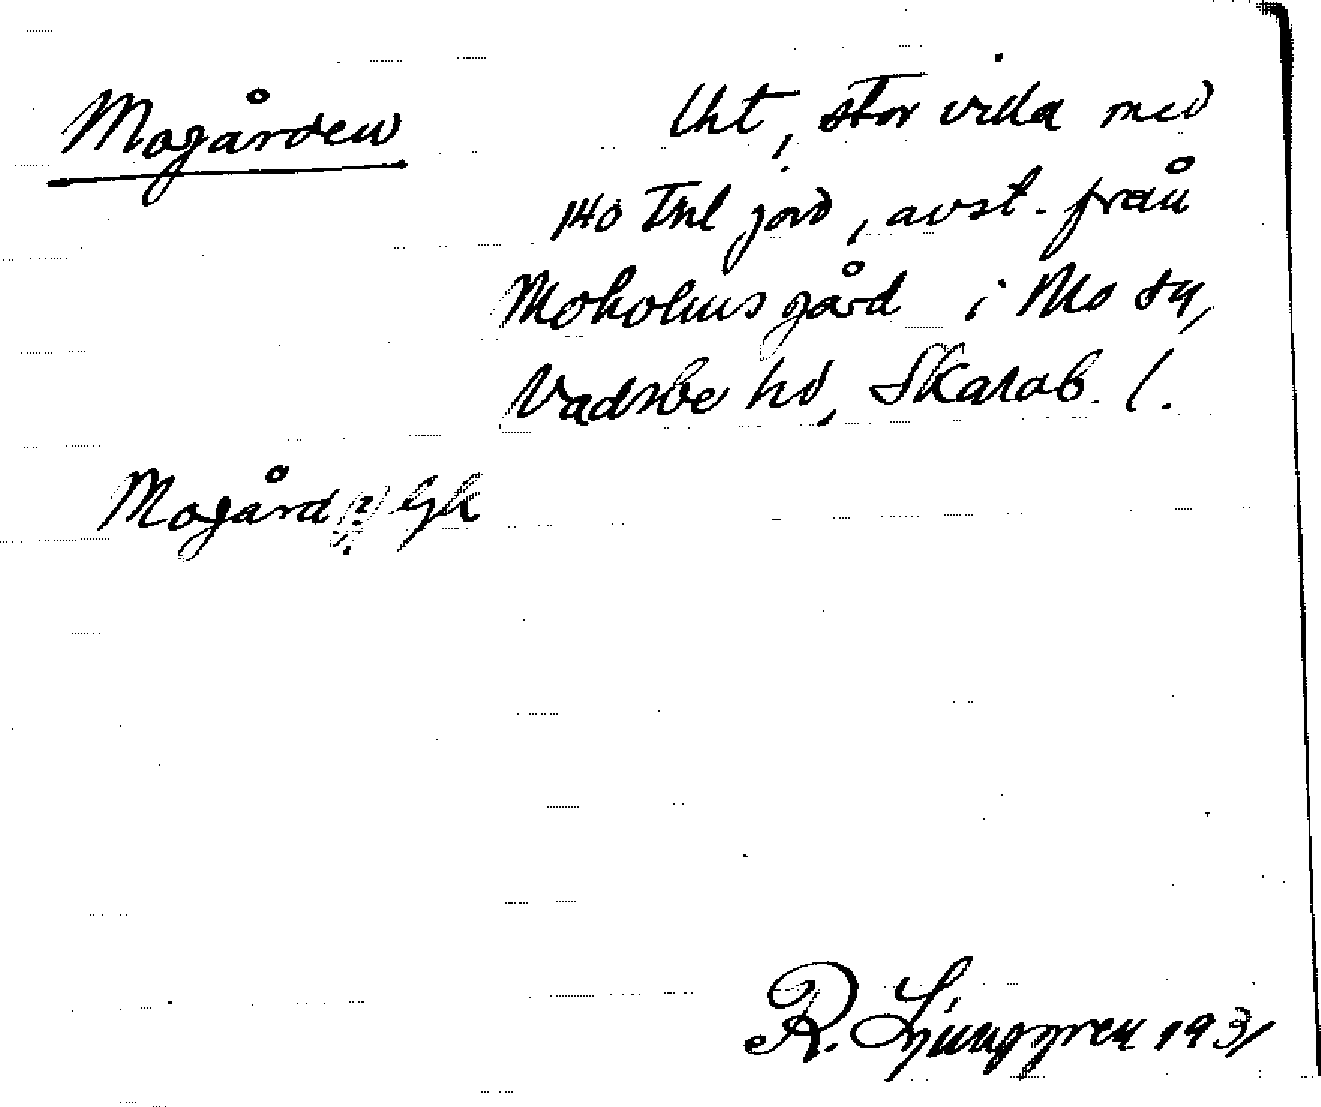 Mogården
Lht, stor villa med
140 Tnl jord, avst. från
Moholms gård i Mo sn,
Vadsbo hd, Skarab. l.
Mogård
R. Ljunggren 1931